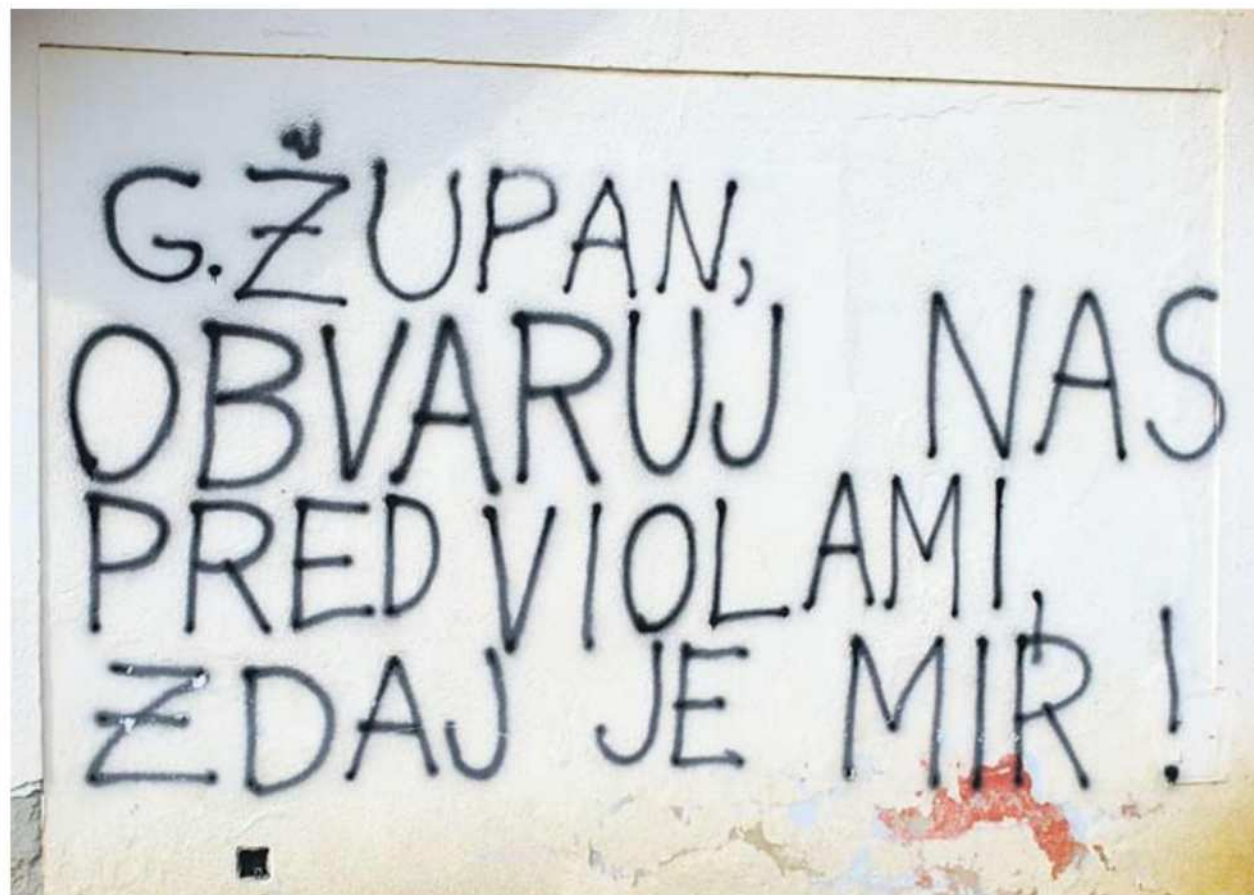 G. ŽUPAN,
OBVARUJ NAS
PRED VIOLAMI,
ZDAJ JE MIR!